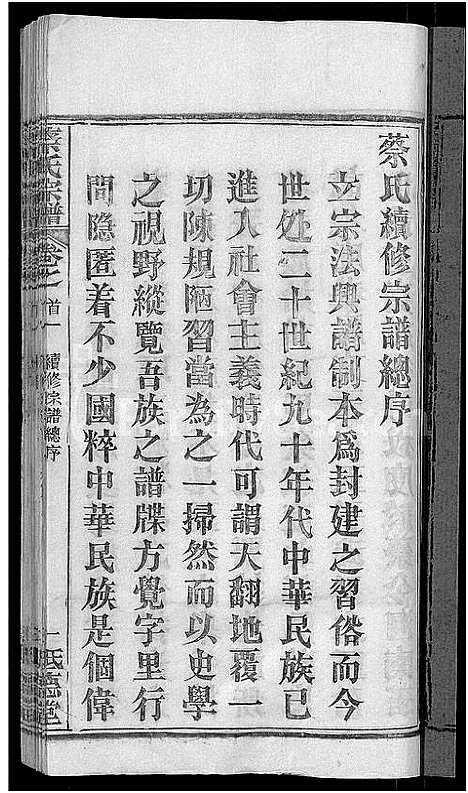 蔡氏續修宗譜總序
立宗法興譜制本爲封建之習俗而今
世处二十世紀九十年代中華民族已
進入社會主義時代可謂天翻地覆一
切陳規陋習當為之一掃然而以史學
之視野縱覽吾族之譜牒方覺字里行
間隐匿着不少國粹中華民族是個偉
蔡氏宗譜 卷之首 續修宗譜總序 一